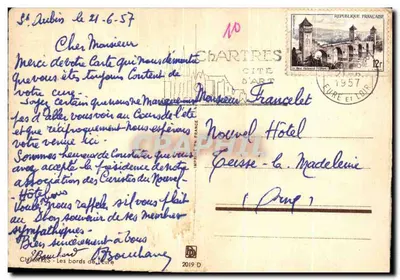 St Aubin le 21-6-57
Cher Monsieur
Merci de votre Carte qui nous démontre
que vous êtes toujours content de
votre cure.
Soyez certain que nous ne manquerons
pas d'aller vous voir au Cours de l'été
et que réciproquement nous espérons
votre venue ici.
Sommes heureux de constater que vous
avez accepté la présidence de notre
association des Curistes du Nouvel
Hôtel
Voulez nous rappeler s'il vous plait
au bon souvenir de ses membres
sympathiques.
Bien sincèrement à vous
Bouchard
CHARTRES - Les bords de l'Eure
2019 D
10
CHARTRES
CITE
D'ART
REPUBLIQUE FRANÇAISE
12F
1957
EURE ET LOIR
Monsieur Francelet
Nouvel Hôtel
Neisse-la Madeleine
(Orne)
Cartes-Postales